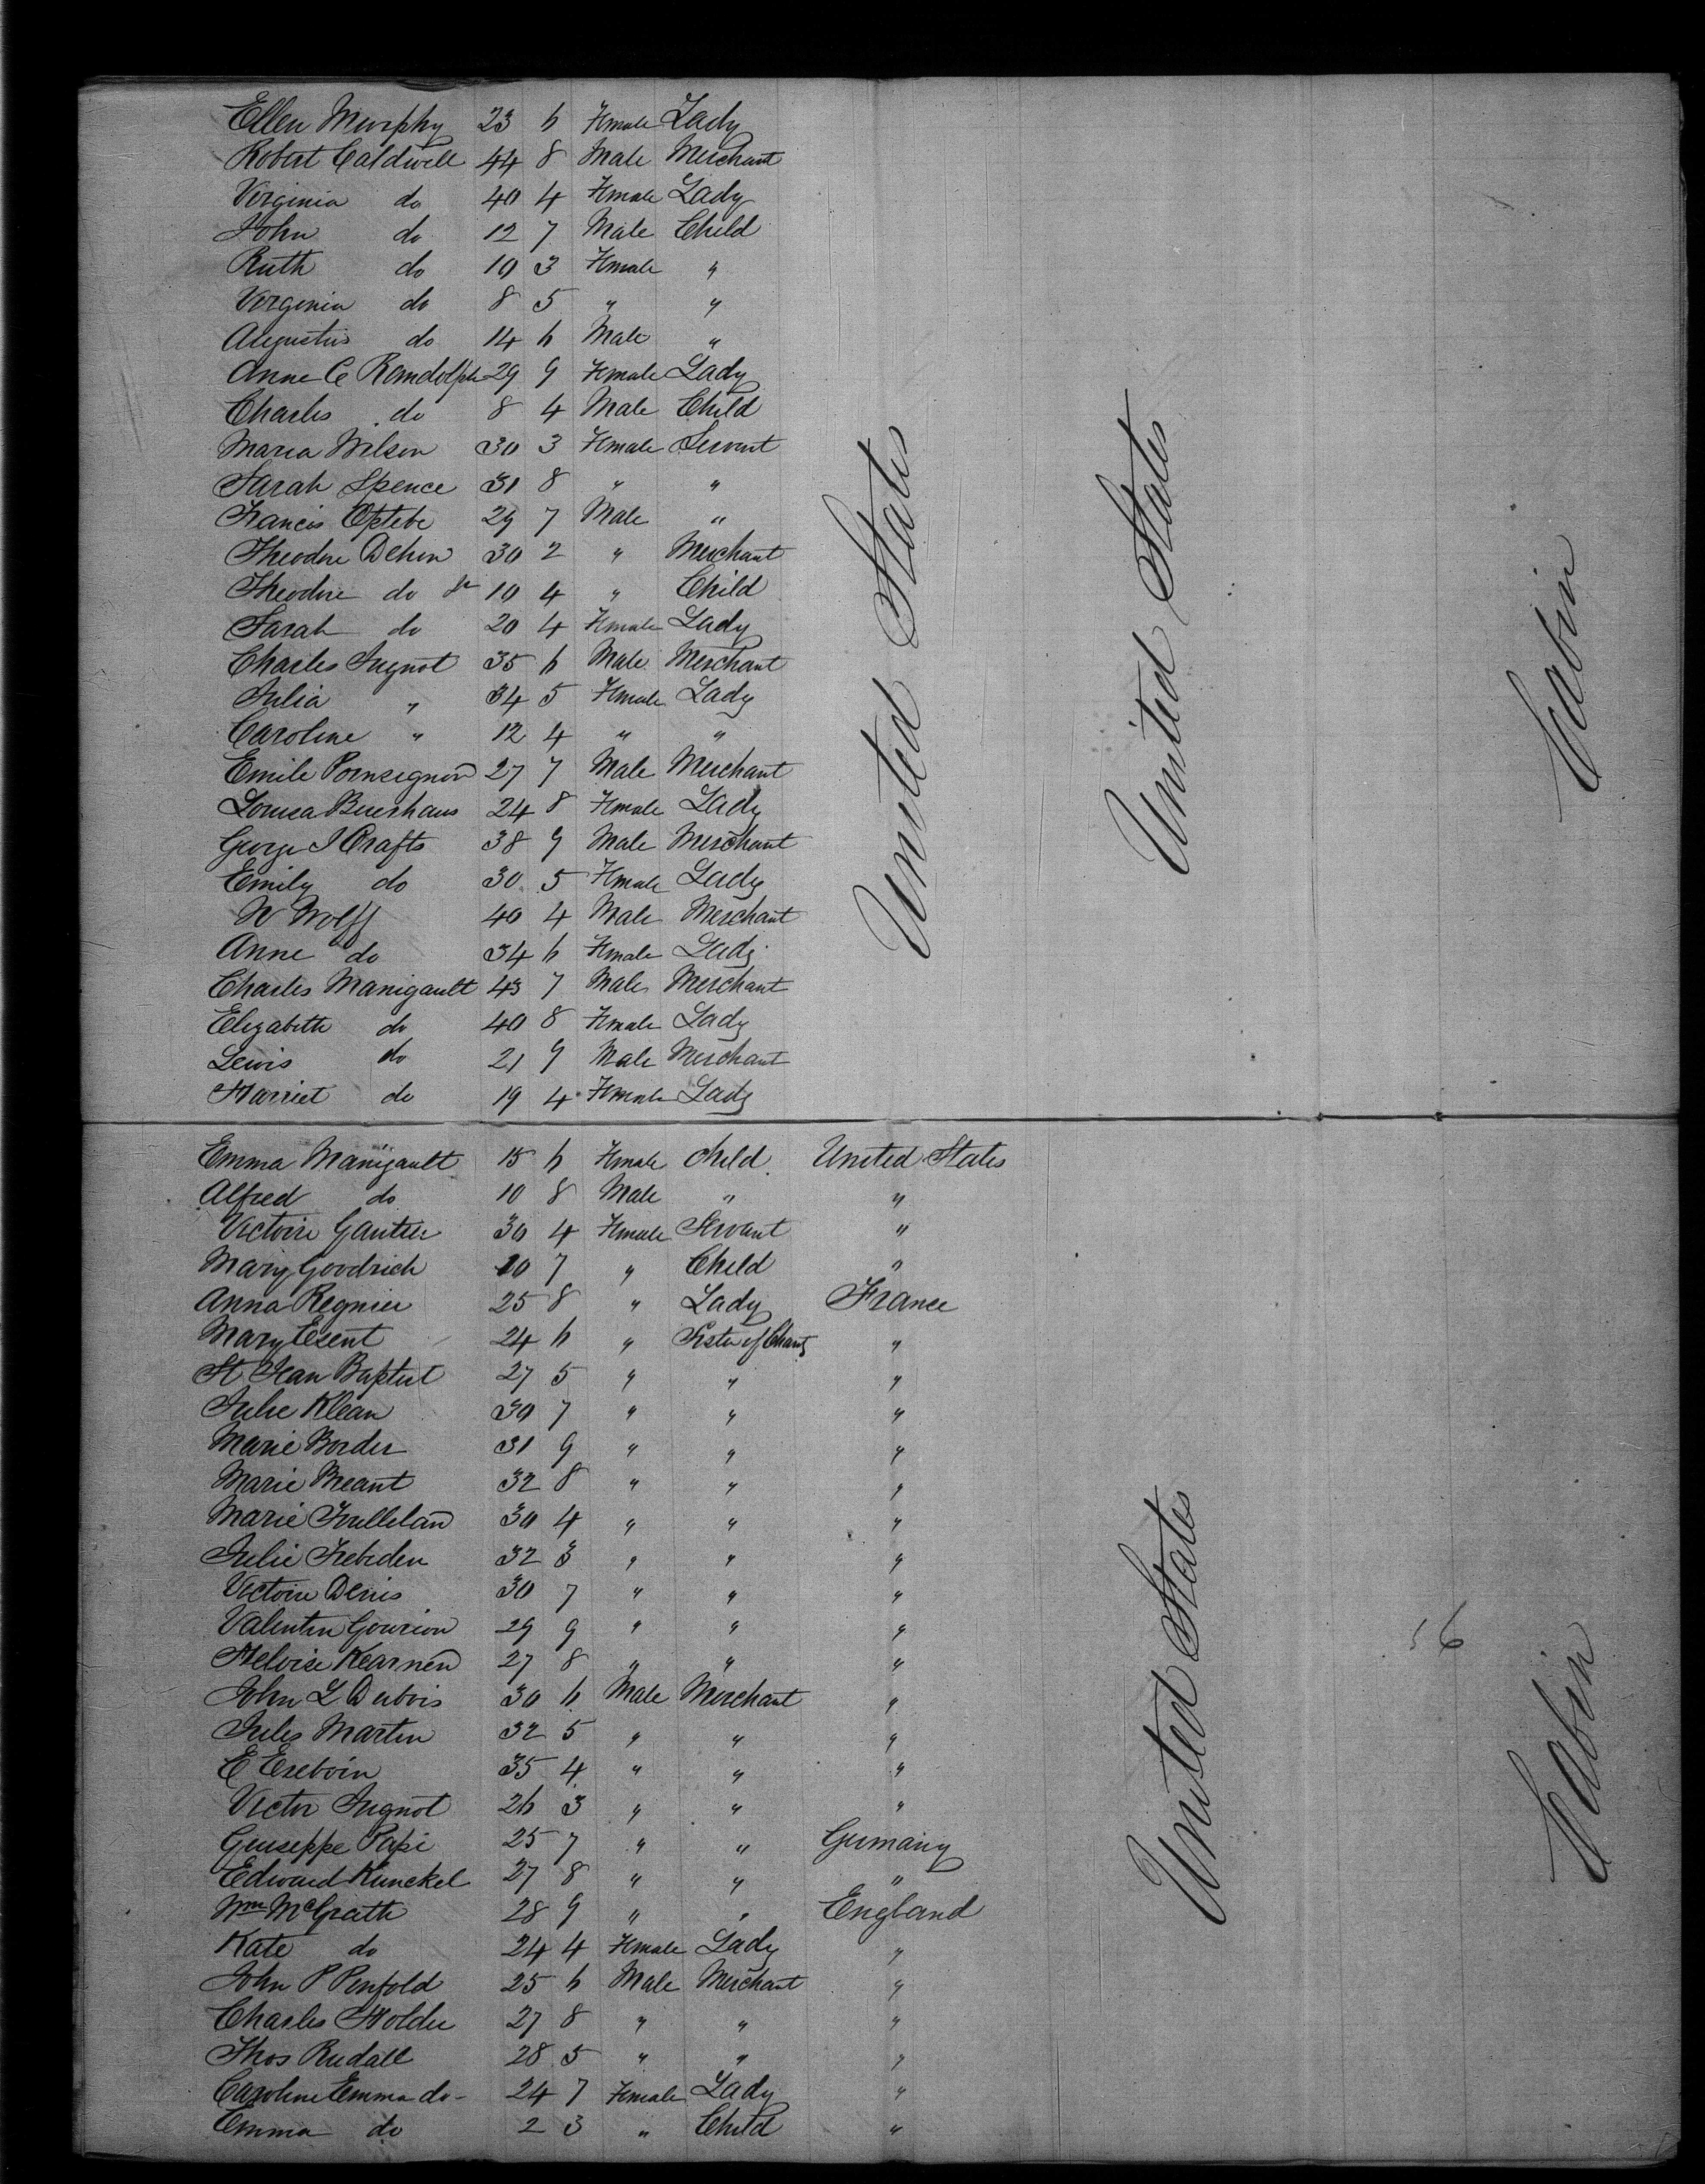 Ellen Murphy 23 6 Female Lady
Robert Caldwell 44 8 Male Merchant
Virginia do 40 4 Female Lady
John do 12 7 Male Child
Ruth do 10 3 Female "
Virginia do 8 5 " "
Augustus do 14 6 Male "
Anne C Randolph 29 9 Female Lady
Charles do 8 4 Male Child
Maria Wilson 30 3 Female Servant
Sarah Spence 31 8 " "
Francis 29 7 Male "
Theodore Dehon 30 2 " Merchant
Theodore do Jr 10 4 " Child
Sarah do 20 4 Female Lady
Charles Jugnot 35 6 Male Merchant
Julia " 34 5 Female Lady
Caroline " 12 4 " "
Emile Poinsignon 27 7 Male Merchant
Louisa 24 8 Female Lady
George I Crafts 38 9 Male Merchant
Emily do 30 5 Female Lady
W Wolff 40 4 Male Merchant
Anne do 34 6 Female Lady
Charles Manigault 43 7 Male Merchant
Elizabeth do 40 8 Female Lady
Lewis do 21 9 Male Merchant
Harriet do 19 4 Female Lady
United States
United States
Cabin
Emma Manigault 15 6 Female Child United States
Alfred do 10 8 Male " "
Victoire Gautier 30 4 Female Servant "
Mary Goodrich 10 7 " Child "
Anna Regnier 25 8 " Lady France
Mary 24 6 " Sister of Charity "
St Jean Baptist 27 5 " " "
Julie Klean 30 7 " " "
Marie Border 31 9 " " "
Marie Meant 32 8 " " "
Marie 30 4 " " "
Julie 32 3 " " "
Victoire Denis 30 7 " " "
Valentin Gourion 29 9 " " "
Heloise Kearnen 27 8 " " "
John L Dubois 30 6 Male Merchant "
Jules Martin 32 5 " " "
E 35 4 " " "
Victor Jugnot 26 3 " " "
Giuseppe Papi 25 7 " " Germany
Edward Kunckel 27 8 " " "
Wm McGrath 28 9 " " England
Kate do 24 4 Female Lady "
John P Penfold 25 6 Male Merchant "
Charles Holder 27 8 " " "
Thos Rudall 28 5 " " "
Caroline Emma do- 24 7 Female Lady "
Emma do 2 3 " Child "
United States
56
Cabin